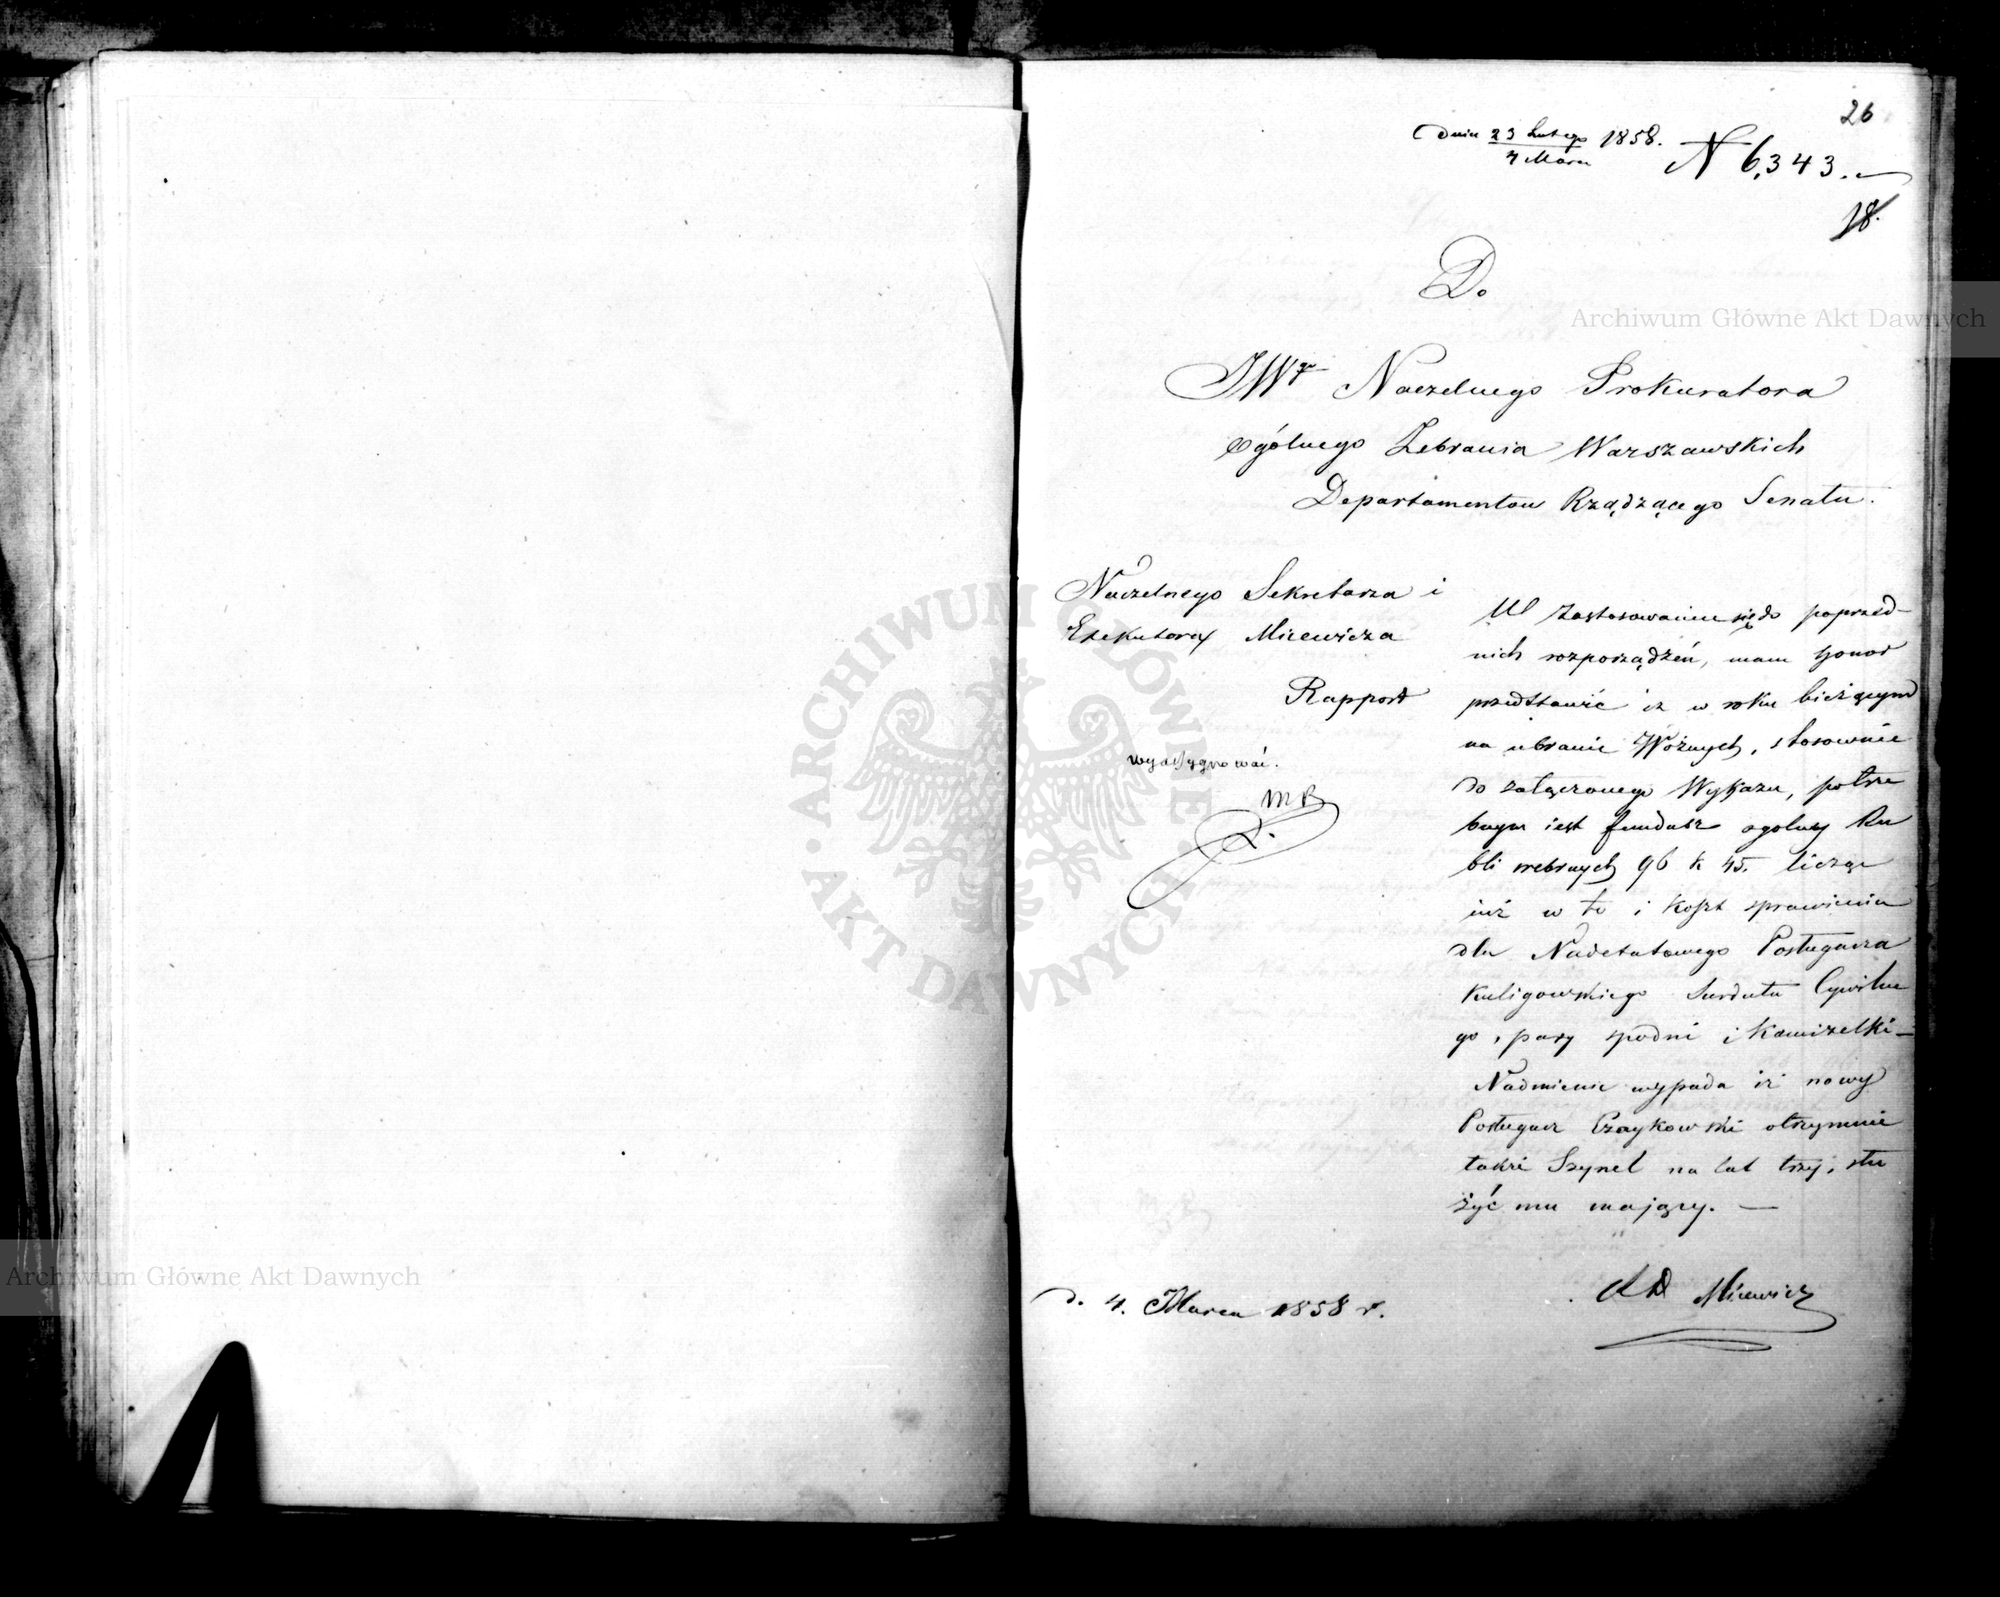 26
Dnia 23 Lutego 1858. N 6,343.
Marca
18.
Do
JWgo Naczelnego Prokuratora
Ogólnego Zebrania Warszawskich
Departamentów Rządzącego Senatu.
Naczelnego Sekretarza i
Exekutora Micewicza
Rapport
wyassygnować.
MR
W zastosowaniu się do poprzed-
nich rozporządzeń, mam honor
przedstawić iż w roku bieżącym
na ubranie Woźnych, stosownie
do załączonego Wykazu, potrze
bnym jest fundusz ogólny Ru
bli srebrnych 96 k 45. licząc
już w to i koszt sprawienia
dla Nadetatowego Posługacza
Kuligowskiego Surduta Cywilne
go, pary spodni i kamizelki –
Nadmienić wypada iż nowy
Posługacz Czaykowski otrzymuie
także Szynel na lat trzy, słu
żyć mu mający. —
d. 4. Marca 1858 r.
Micewicz
Archiwum Główne Akt Dawnych
Archiwum Główne Akt Dawnych
ARCHIWUM GŁÓWNE • AKT DAWNYCH •